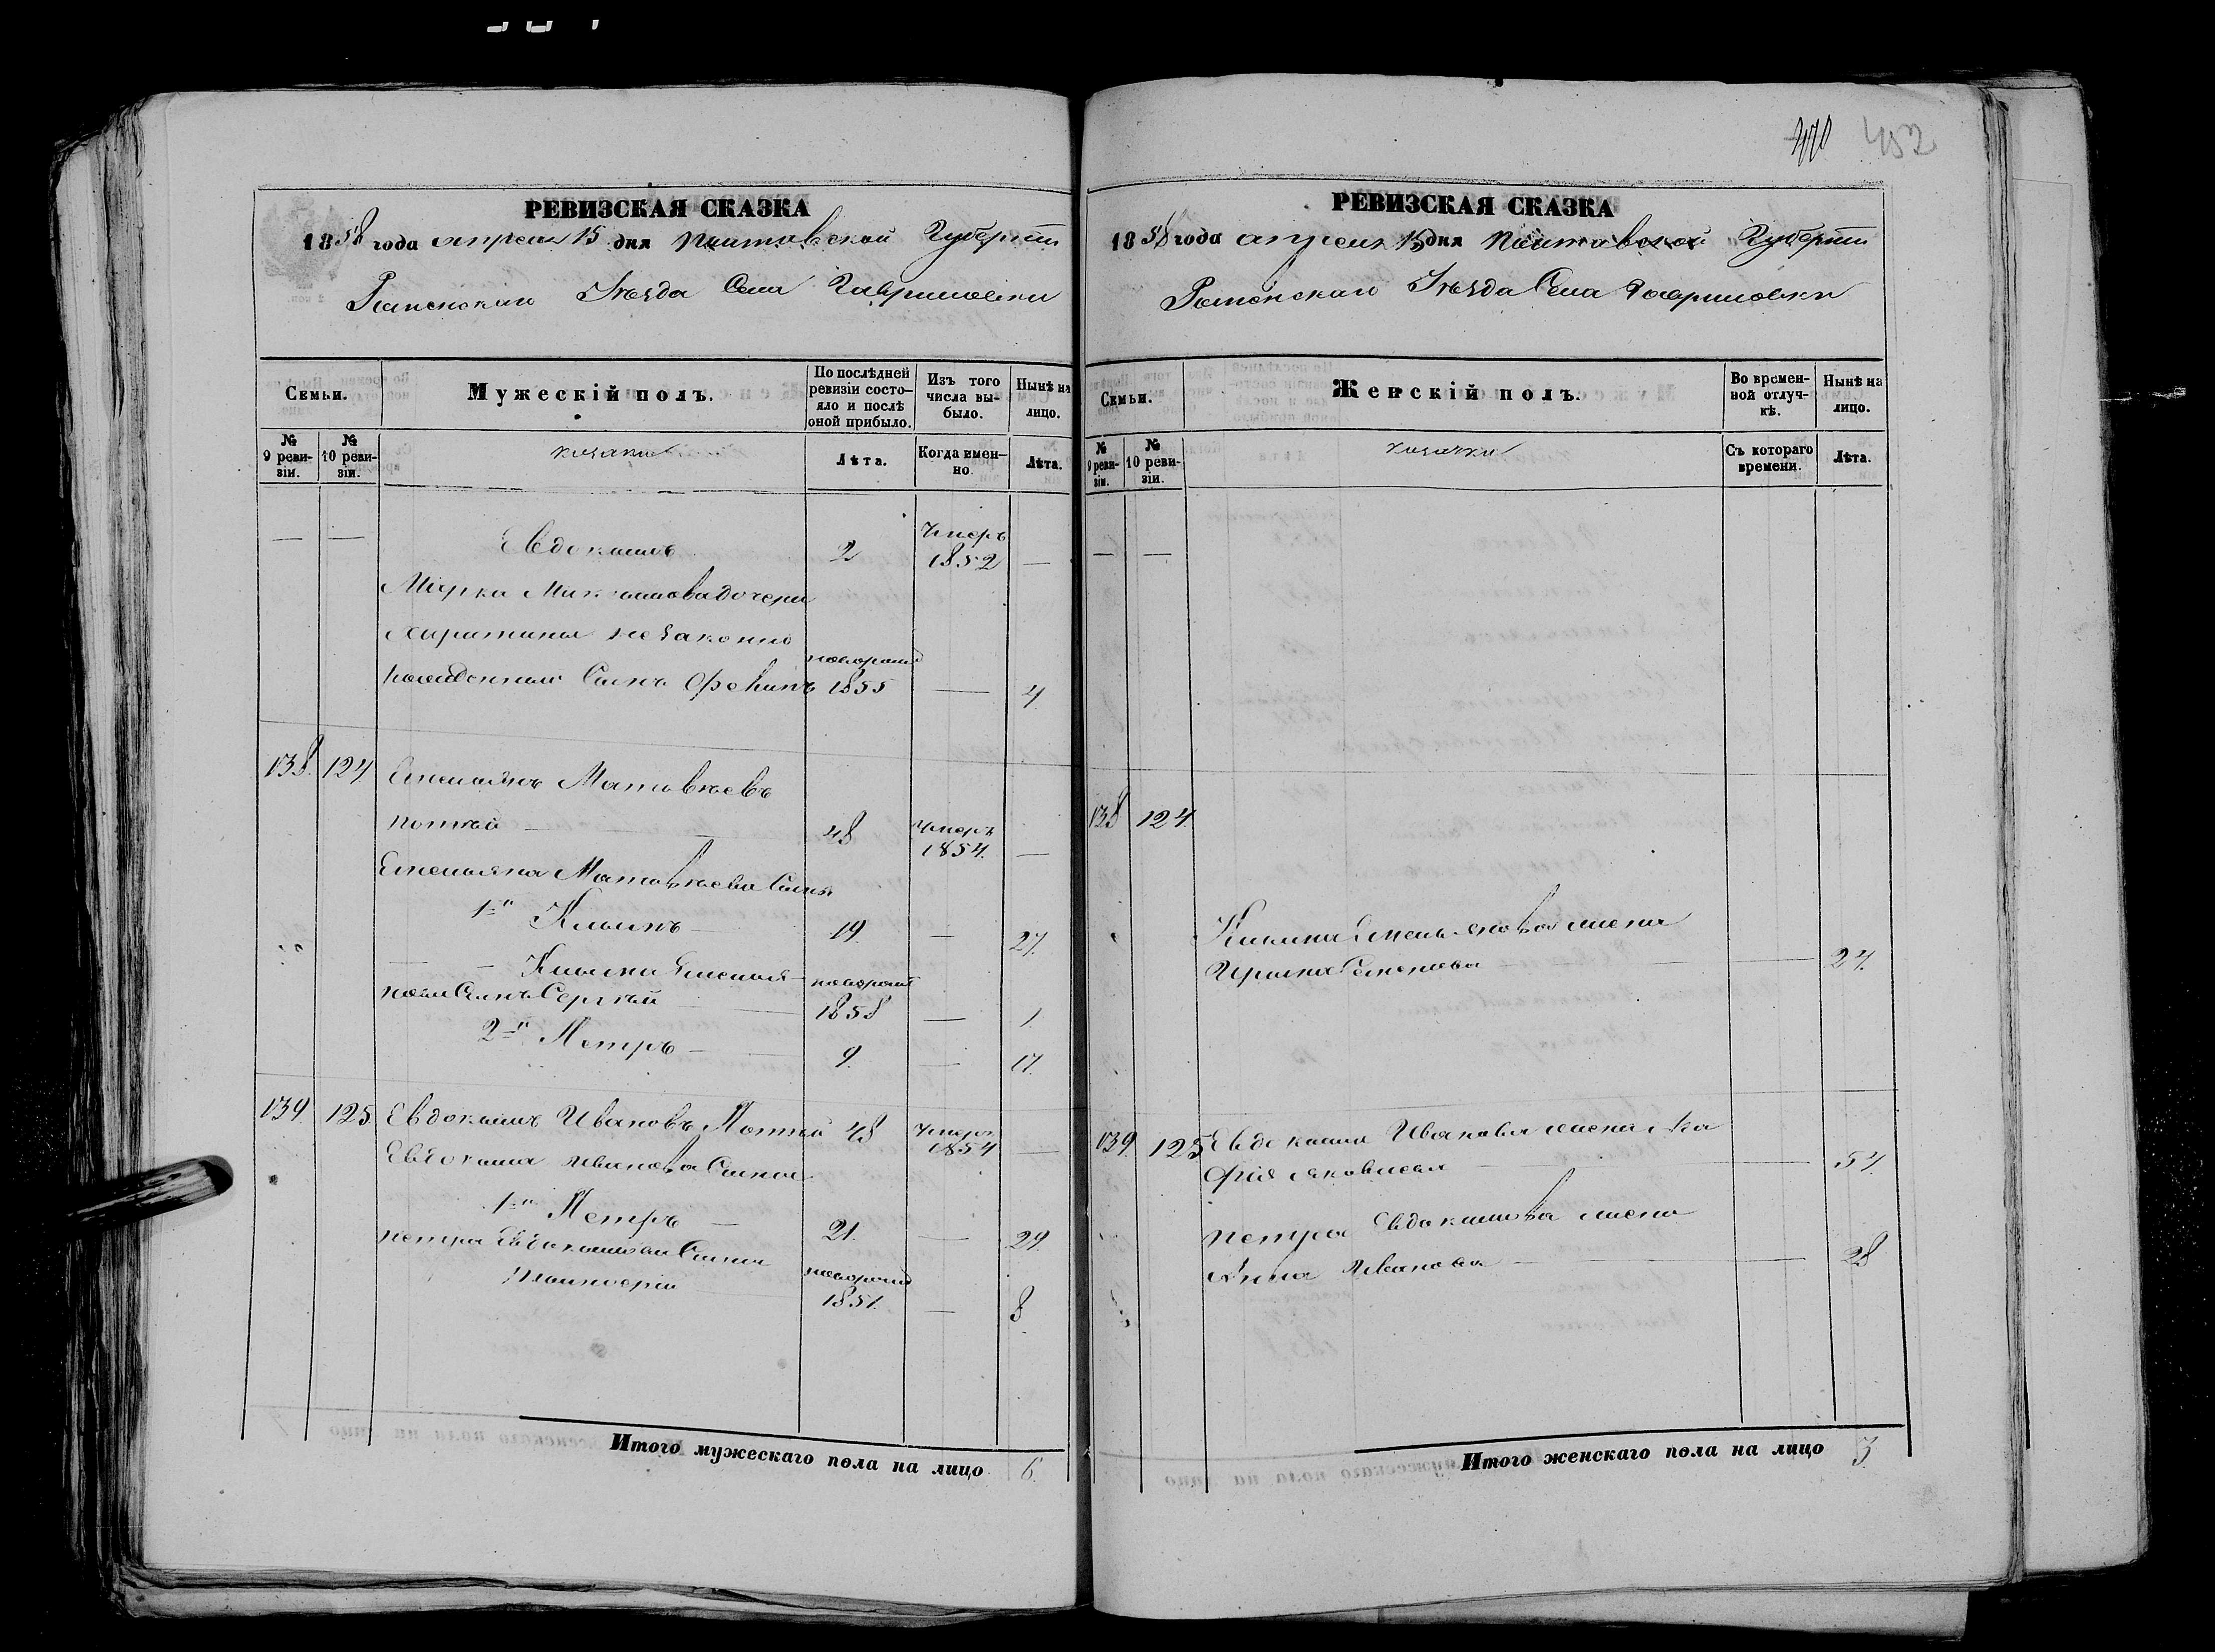 470 452
РЕВИЗСКАЯ СКАЗКА
1858 года апреля 15 дня Полтавской Губернии
Роменскаго Уѣзда Села Гавришовки
Семьи.
Мужескій полъ.
По послѣдней ревизіи состояло и послѣ оной прибыло.
Изъ того числа выбыло.
Нынѣ на лицо.
№ 9 ревизіи.
№ 10 ревизіи.
козаки
Лѣта.
Когда именно.
Лѣта.
— — Евдокимъ 2 Умеръ 1852 —
Марка Максимова дочери
Харитины незаконно
рожденный Сынъ новорожд 1855 — 4
138. 124 Емельянъ Матвѣевъ
48 Умеръ 1854. —
Емельяна Матвѣева Сыновья
1й Климъ 19. — 27.
Клима Емельянова Сынъ Сергѣй новорожд 1858 — 1
2й Петръ 9. — 17.
139. 125 Евдокимъ Ивановъ 48 Умеръ 1854 —
Евдокима Иванова Сыновья
1й Петръ — 21. — 29.
Петра Евдокимова Сынъ
новорожд 1851. — 8
Итого мужескаго пола на лицо 6.
РЕВИЗСКАЯ СКАЗКА
1858 года апреля 15 дня Полтавской Губернии
Роменскаго Уѣзда Села Гавришовки
Семьи.
Женскій полъ.
Во временной отлучкѣ.
Нынѣ на лицо.
№ 9 ревизіи.
№ 10 ревизіи.
козачки
Съ котораго времени.
Лѣта.
— —
138 124.
Клима Емельянова жена
Ирина Семенова — — 27.
139 125 Евдокима Иванова жена
Яковлева — — 54.
Петра Евдокимова жена
Анна Иванова — — 28
Итого женскаго пола на лицо 3